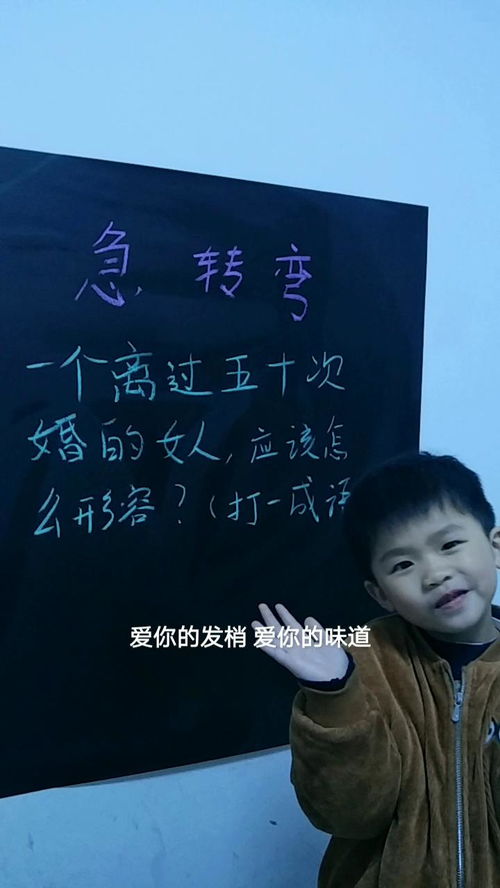 急转弯
一个离过五十次
婚的女人,应该怎
么形容?(打一成语
爱你的发梢 爱你的味道